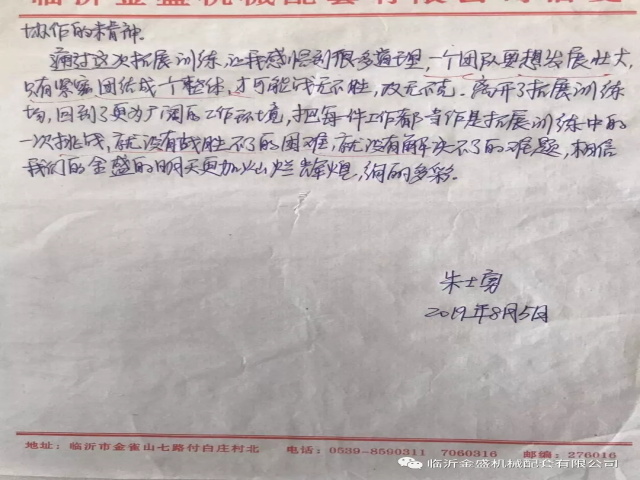 临沂金盛机械配套有限公司信笺
协作的精神。
通过这次拓展训练,让我感悟到很多道理,一个团队要想发展壮大,
只有紧密团结成一个整体,才可能战无不胜,攻无不克。离开了拓展训练
场,回到了更为广阔的工作环境,把每一件工作都当作是拓展训练中的
一次挑战,就没有战胜不了的困难,就没有解决不了的难题,相信
我们的金盛的明天更加灿烂辉煌,绚丽多彩。
朱士勇
2019年8月5日
地址:临沂市金雀山七路付白庄村北 电话:0539-8590311 7060316 邮编:276016
临沂金盛机械配套有限公司